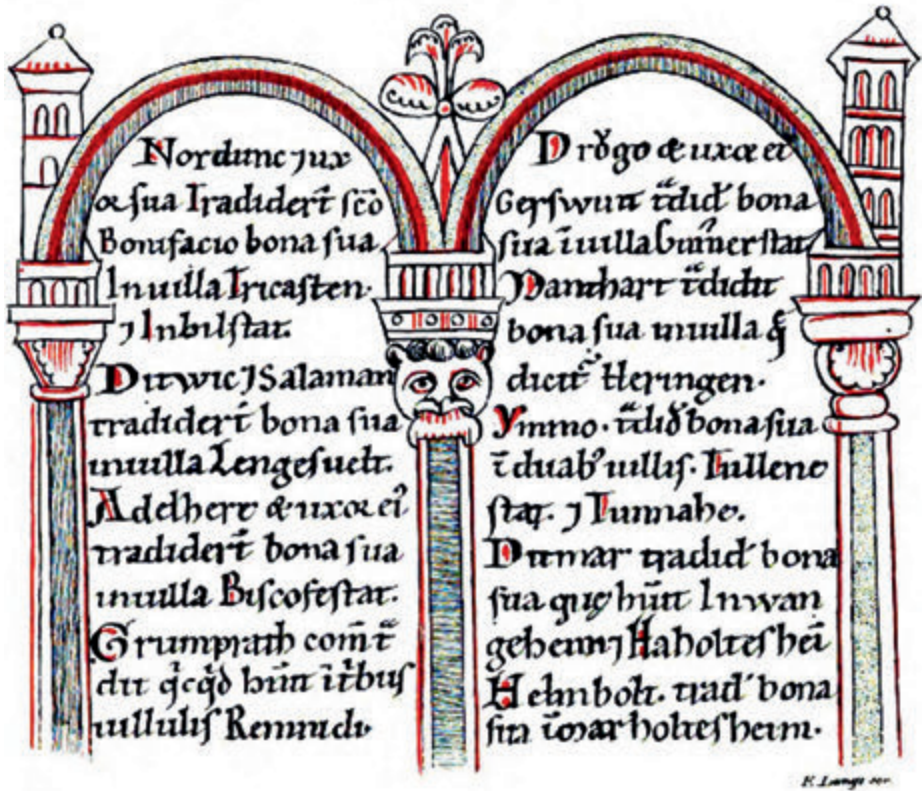 Nordunc ⁊ ux
or sua Tradider̄t sc̄o
Bonifacio bona sua
In uilla Tricasten.
⁊ In bilstat.
Ditwic ⁊ Salaman
tradider̄t bona sua
in uilla Lengesuelt.
Adelhert & uxor ei᾿
tradider̄t bona sua
in uilla Biscofestat.
Grumprath com̄
dit hn̄t
uillulis
Drogo & uxor ei᾿
Gerswint t͛did bona
sua ī uilla
Manthart t͛didit
bona sua in uilla
dicit᾿ Heringen.
Ymmo. t͛did bona sua
ī duab᾿ uillis. Tullene
stat. ⁊ Tunnahe.
Ditmar tradid bona
sua quę hn̄t In wan
geheim ⁊ Haholtes hei
Helmbolt. trad bona
sua ī marholtesheim.